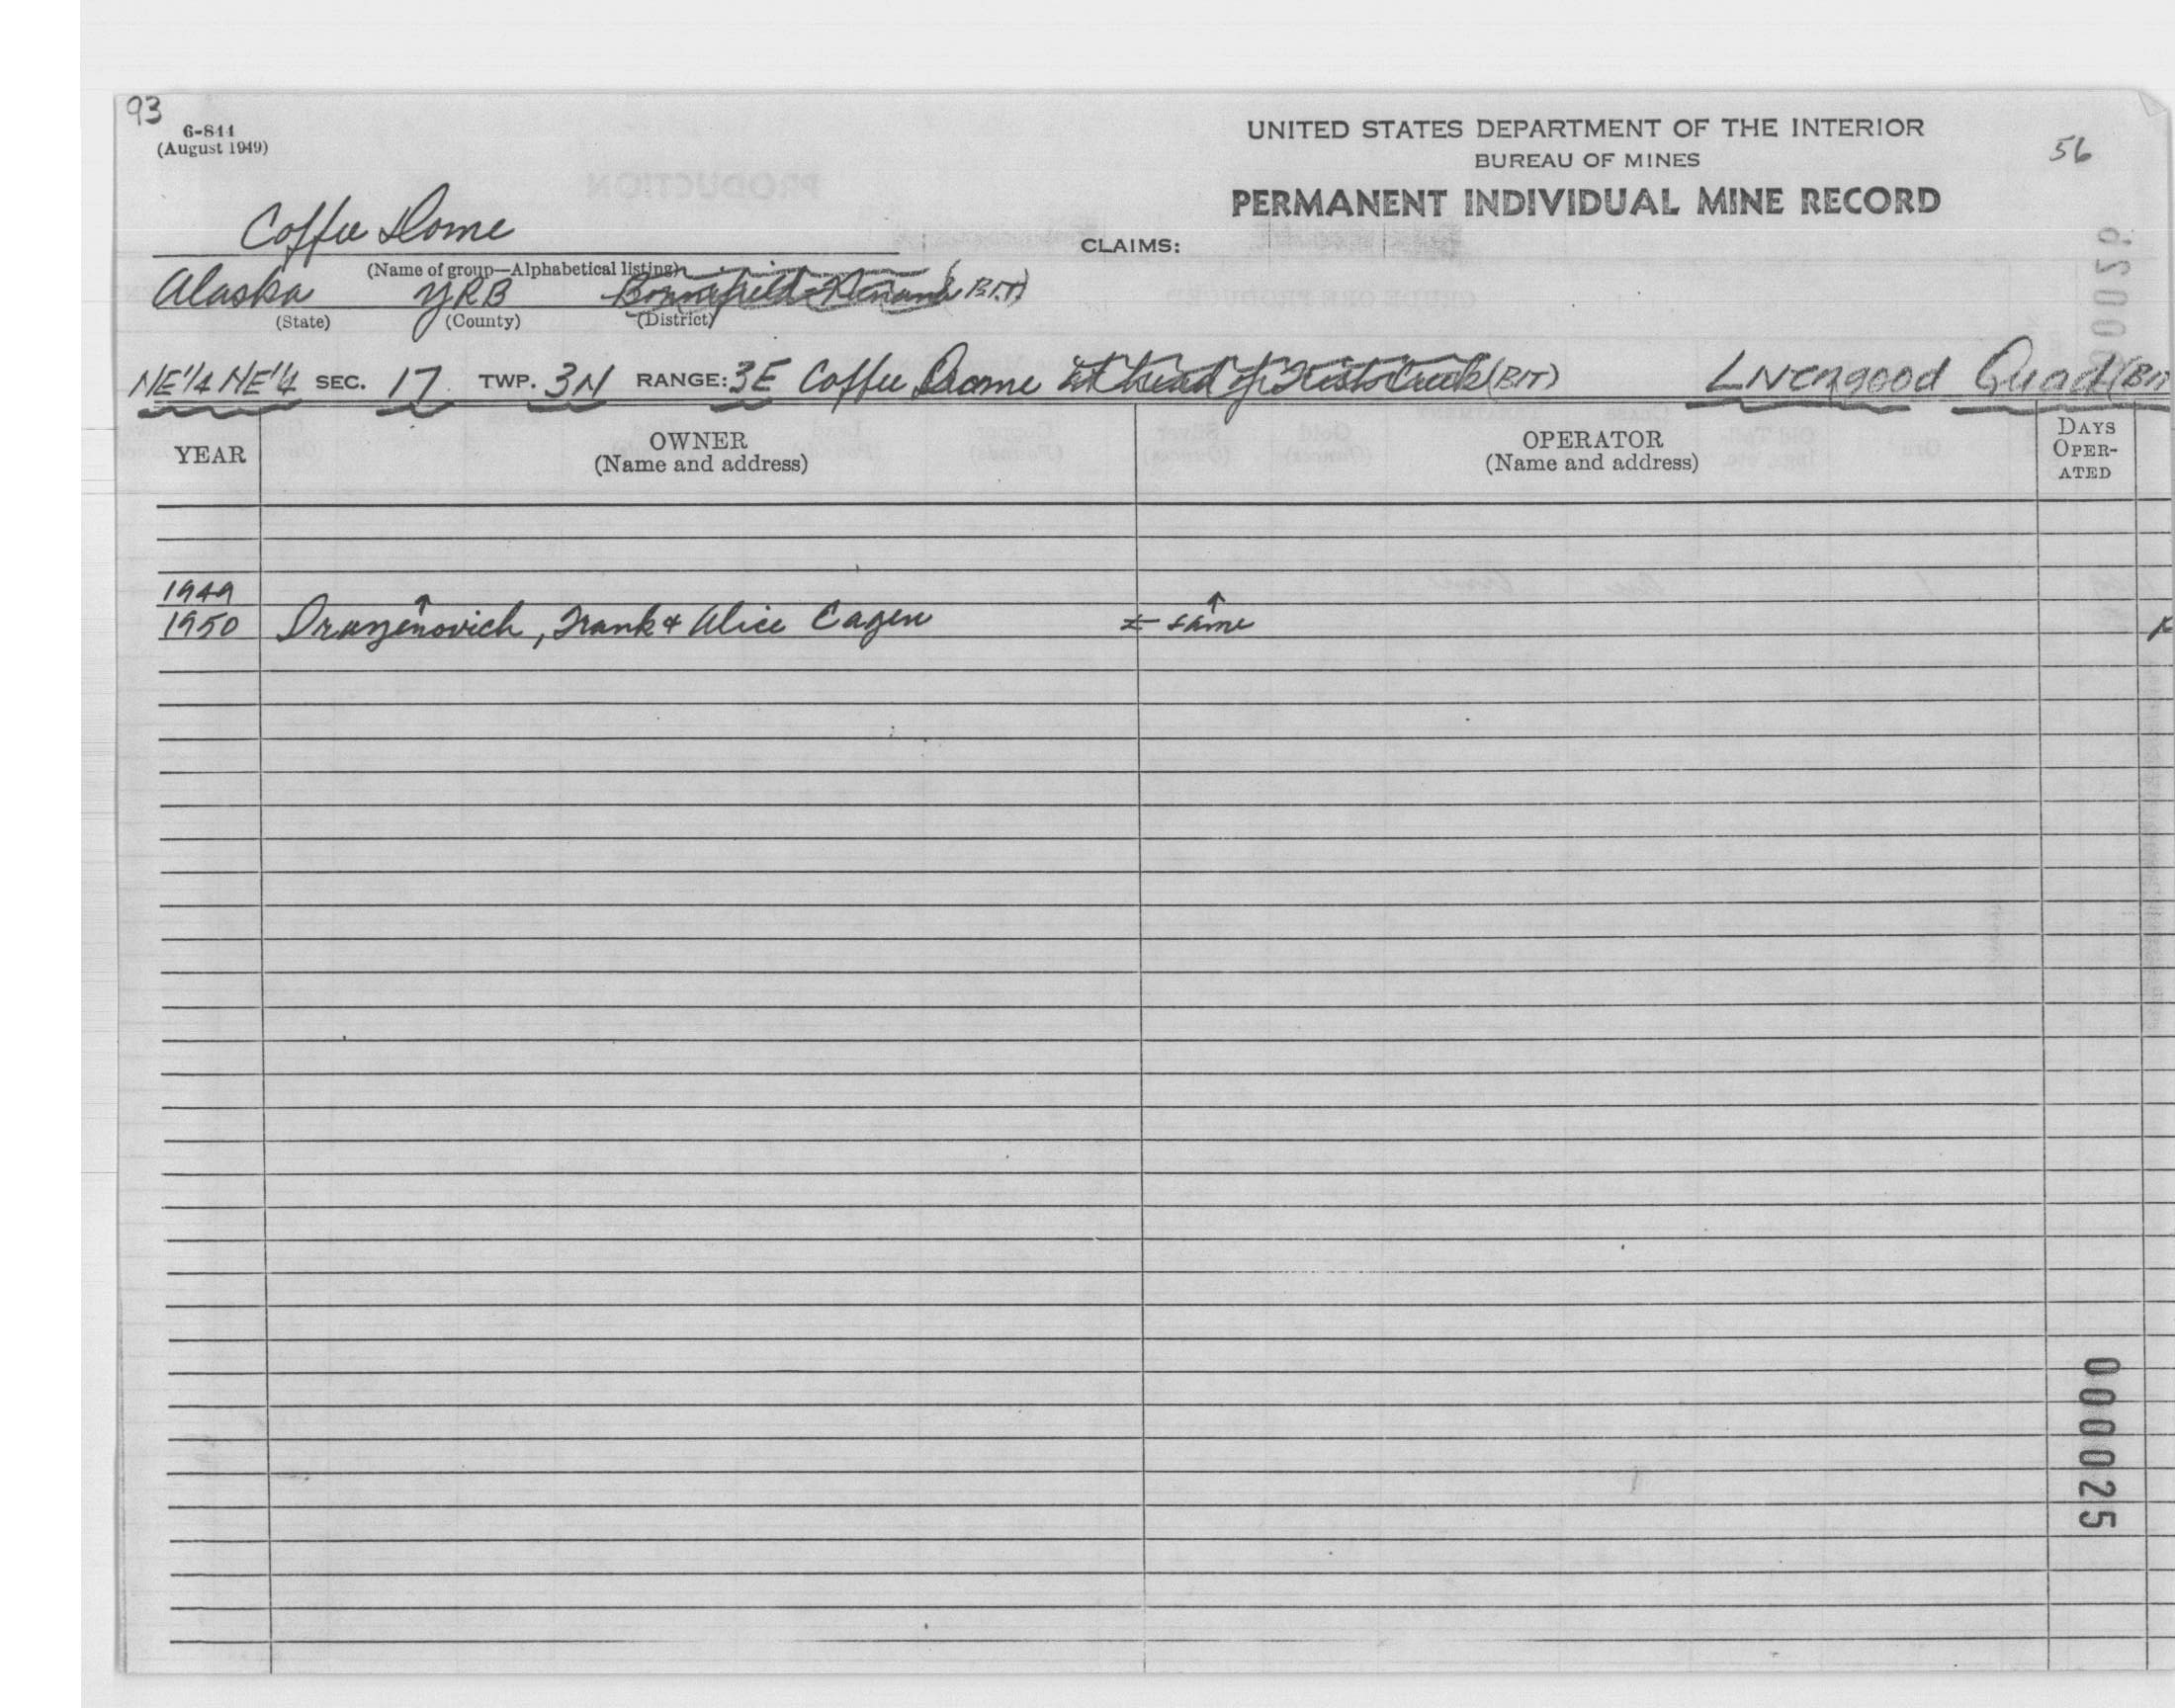 93
6-844
(August 1949)
UNITED STATES DEPARTMENT OF THE INTERIOR
BUREAU OF MINES
PERMANENT INDIVIDUAL MINE RECORD
56
Coffee Dome
(Name of group—Alphabetical listing)
CLAIMS:
Alaska YRB (BIT)
(State) (County) (District)
NE 1/4 NE 1/4 SEC. 17 TWP. 3N RANGE: 3E Coffee Dome at head of Creek (BIT) Livengood Quad (BIT
YEAR OWNER (Name and address) OPERATOR (Name and address) DAYS OPER-ATED
1949
1950 Drazenovich, Frank & Alice Eagen ← same
000025